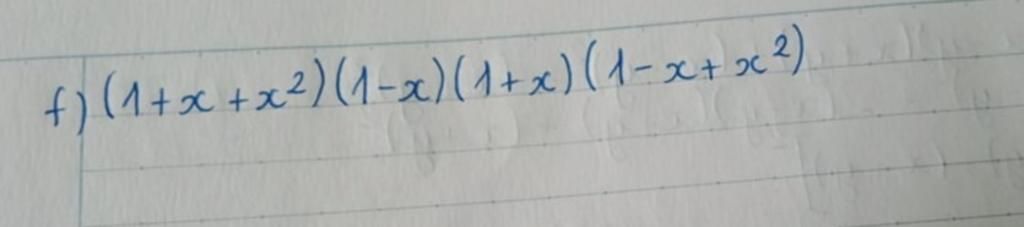 f) (1+x+x²)(1-x)(1+x)(1-x+x²)